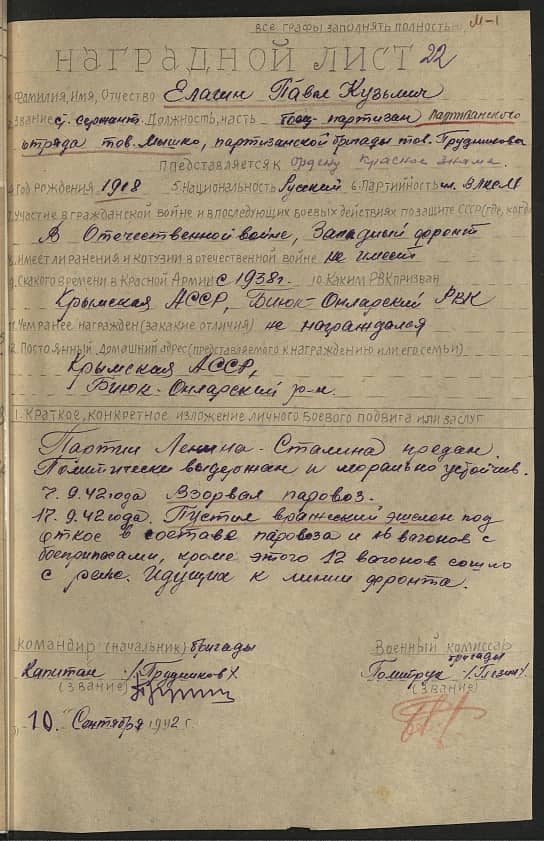 все графы заполнять полностью,
М-1
НАГРАДНОЙ ЛИСТ 22
1. Фамилия, Имя, Отчество Елагин Павел Кузьмич
2. Звание ст. сержант. Должность, часть боец-партизан Партизанского
отряда тов. Мышко, партизанской бригады тов. Прудникова
Представляется к ордену Красное знамя.
4. Год рождения 1918 5. Национальность Русский 6. Партийность чл. ВЛКСМ
7. Участие в гражданской войне и в последующих боевых действиях по защите СССР (где, когда
В Отечественной войне, Западный фронт
8. Имеет ли ранения и котузии в отечественной войне не имеет
9. С какого времени в Красной Армии с 1938 г. 10. Каким РВК призван
Крымская АССР, Биюк-Онларский РВК
11. Чем ранее награжден (за какие отличия) не награждался
12. Постоянный домашний адрес (представляемого к награждению или его семьи)
Крымская АССР,
Биюк-Онларский р-н.
1. Краткое, конкретное изложение личного боевого подвига или заслуг
Партии Ленина-Сталина предан.
Политически выдержан и морально устойчив.
7. 9. 42 года Взорвал паровоз.
17. 9. 42 года. Пустил вражеский эшелон под
откос в составе паровоза и вагонов с
боеприпасами, кроме этого 12 вагонов сошло
с рельс. Идущих к линии фронта.
Командир (начальник) бригады
Военный комиссар
бригады
Капитан /Прудников/
Политрук
(Звание)
(Звание)
"10" Сентября 1942 г.